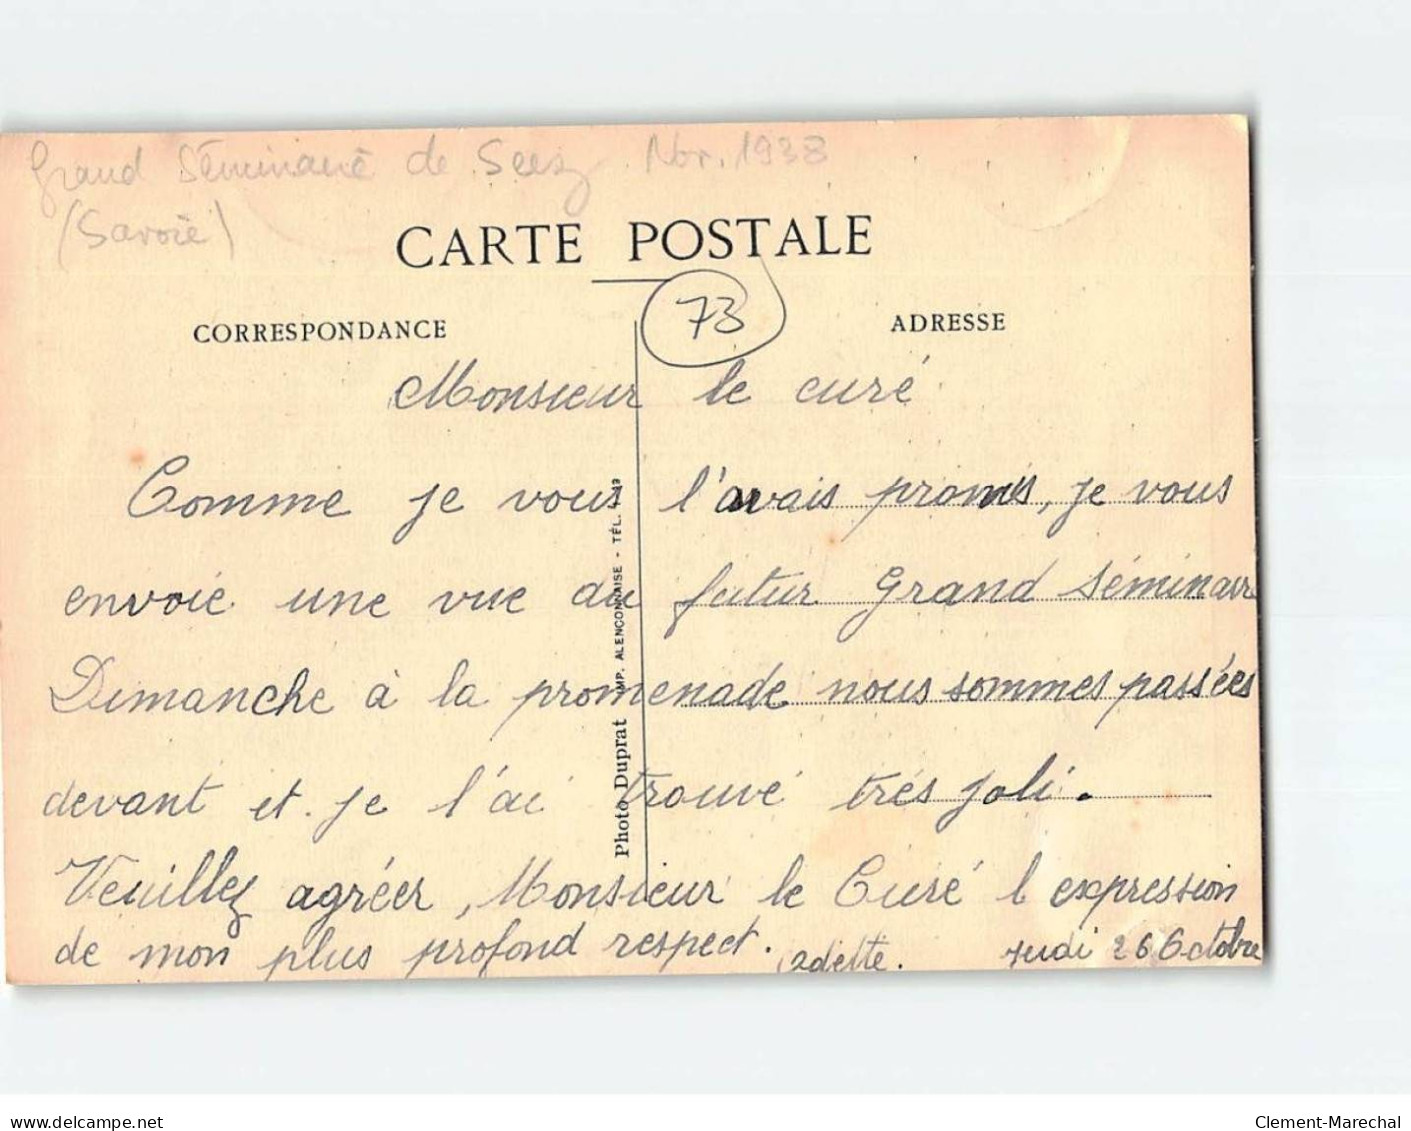 Grand Séminaire de Seez Nov. 1938
(Savoie)
CARTE POSTALE
73
CORRESPONDANCE
ADRESSE
Monsieur le curé
Comme je vous l'avais promis, je vous
envoie une vue du futur Grand Séminaire
Dimanche à la promenade nous sommes passées
devant et je l'ai trouvé trés joli.
Veuillez agréer, Monsieur le Curé l expression
de mon plus profond respect. Odette. Jeudi 26 Octobre
Photo Duprat IMP. ALENCONNAISE - TÉL.
Delcampe.net
Clement-Marechal